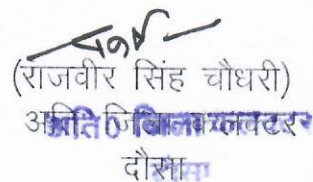 (राजवीर सिंह चौधरी)
अति0 जिला कलक्टर
दौसा